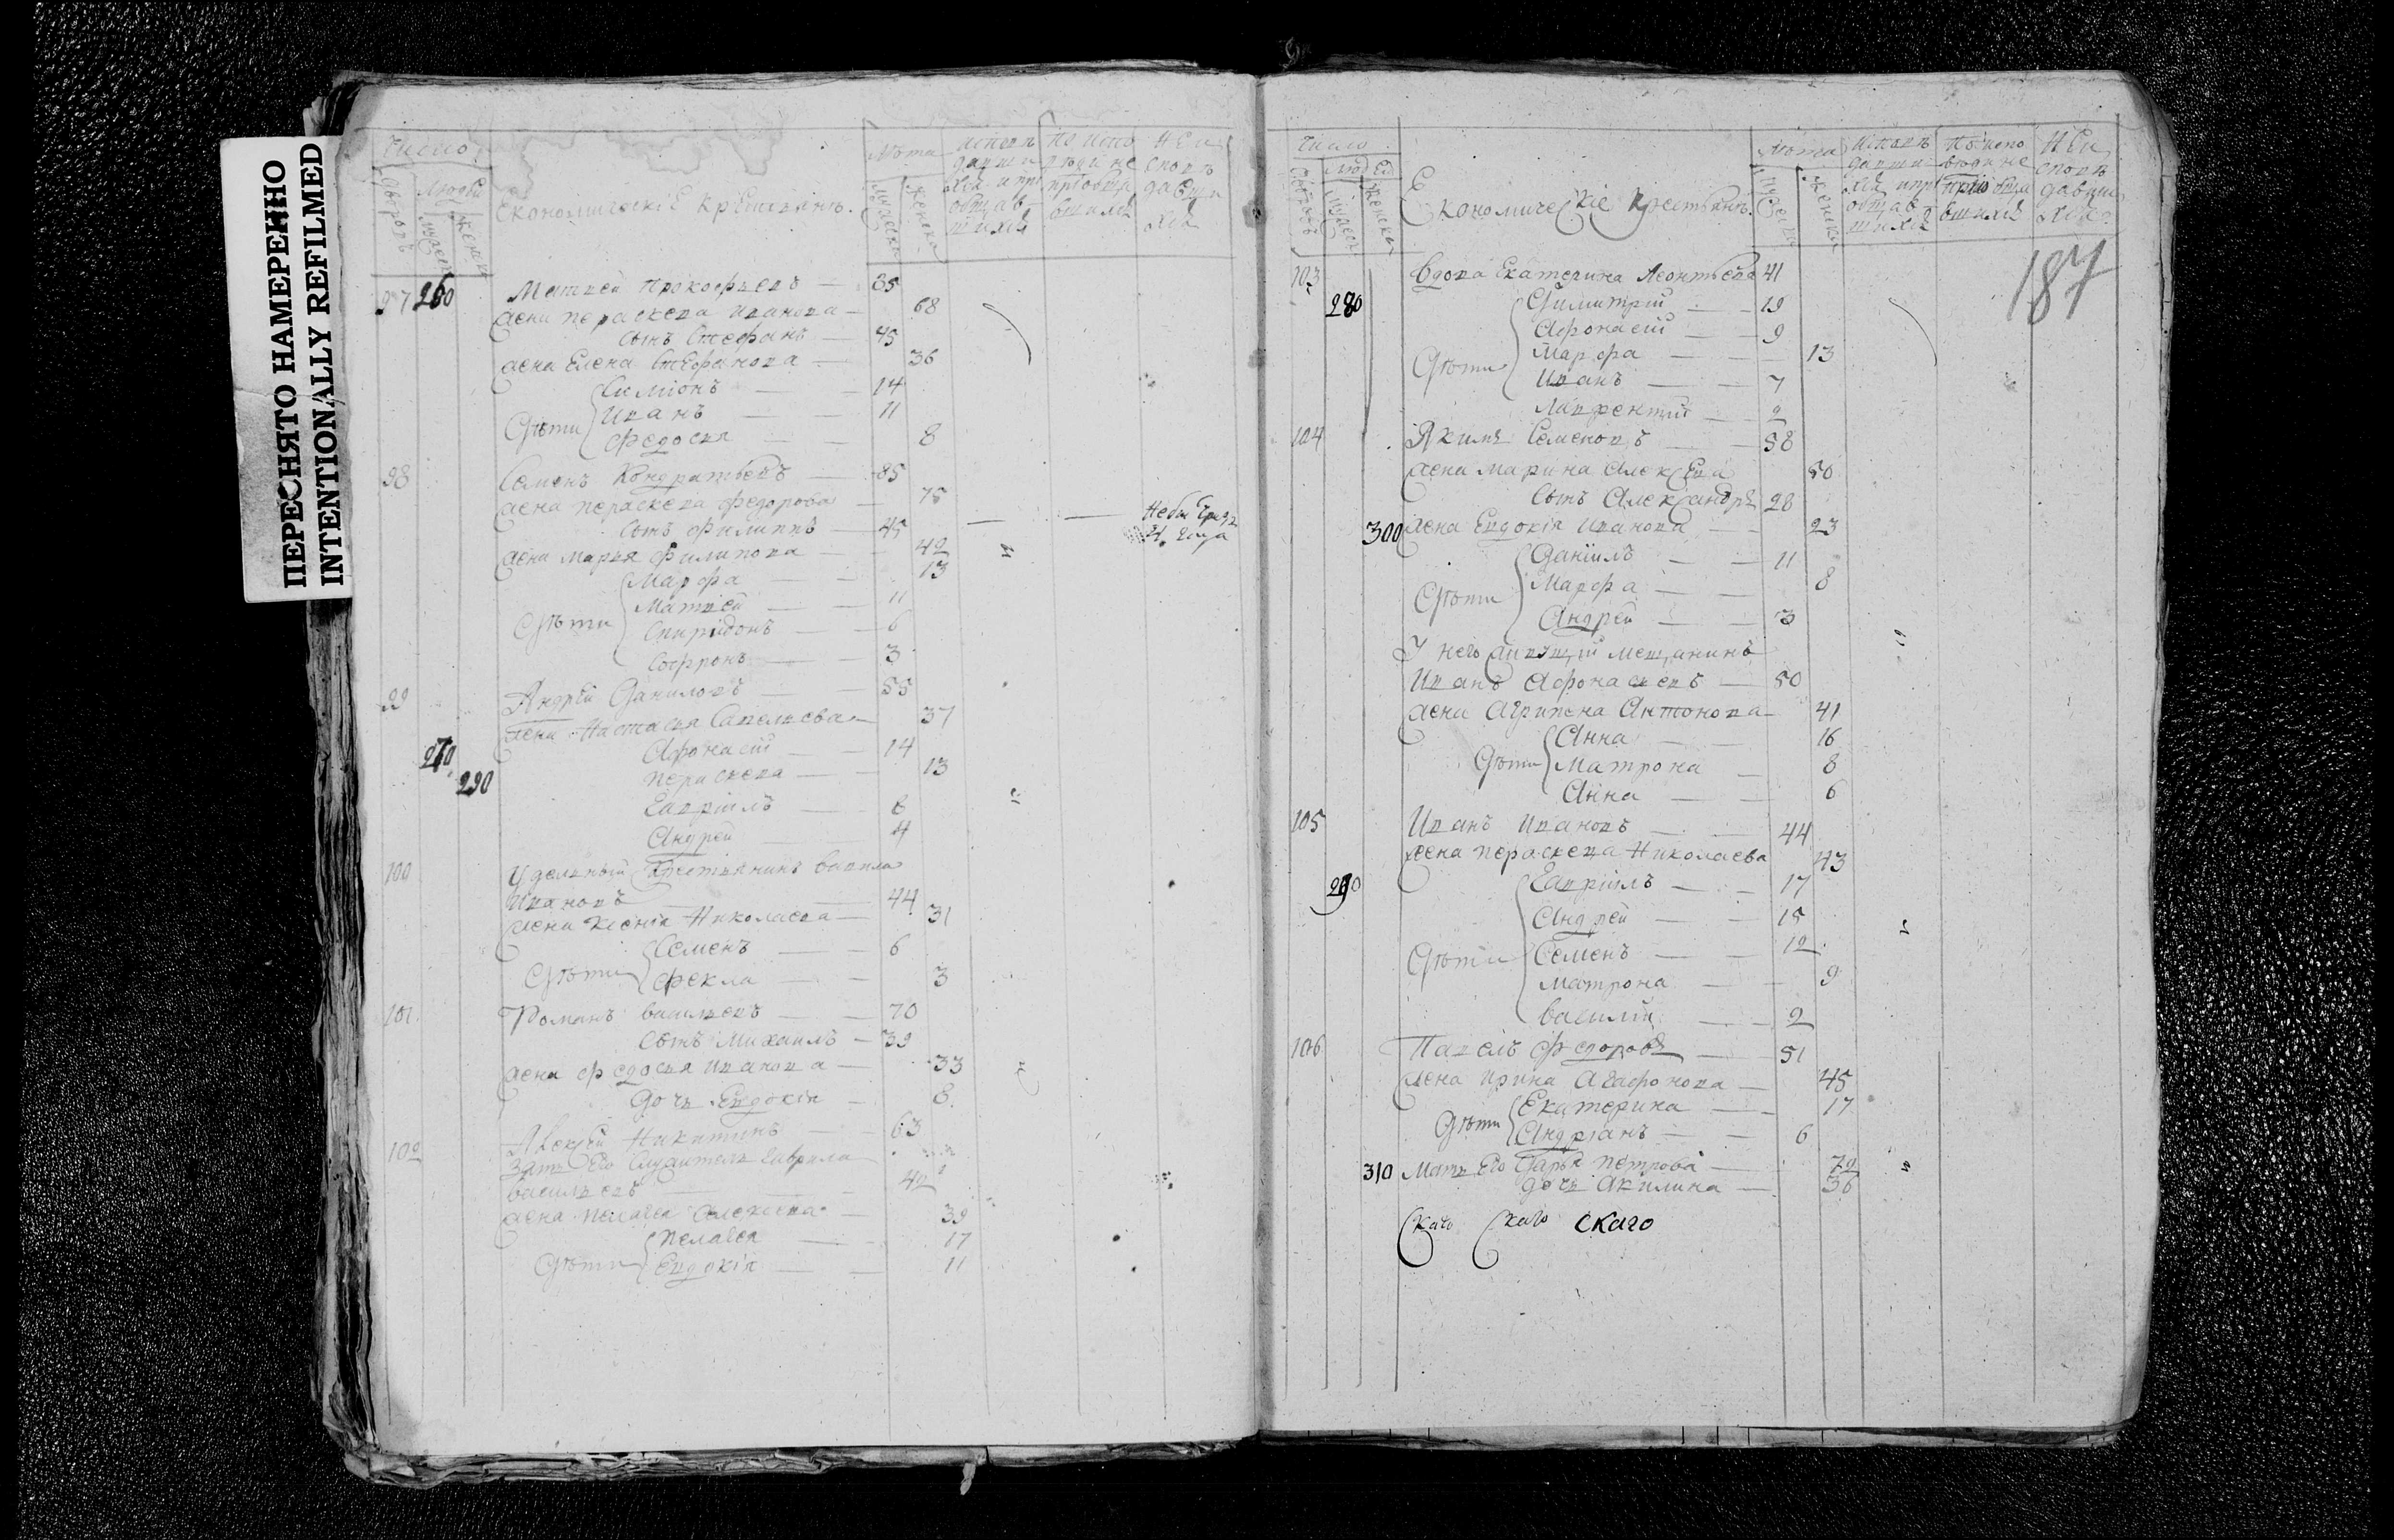 ПЕРЕСНЯТО НАМЕРЕННО
INTENTIONALLY REFILMED
Число
Людей
Дворовъ
Економическіе крестьянѣ.
Лѣта
97 260 Матвей Прокофьевъ — 35
жена Параскева Иванова — 68
сынъ Стефанъ — 45
жена Елена Стефанова — 36
Дѣти Симіонъ — 14
Иванъ — 11
Федосья — 8
98 Семенъ Кондратьевъ — 85
жена Пераскева Федорова — 75
сынъ Филиппъ — 45
жена Марья Филипова — 42
Дѣти Марфа — 13
Матвей — 11
Спиридонъ — 6
Софронъ — 3
99 Андрей Даниловъ — 55
жена Настасья Савельева — 37
270 Афонасій — 14
290 Пераскева — 13
Гавріилъ — 6
Андрей — 4
100 Удельный крестьянинъ Вавила
Ивановъ — 44
жена Ксенія Николаева — 31
Дѣти Семенъ — 6
Фекла — 3
101 Романъ Васильевъ — 70
сынъ Михаилъ — 39
жена Федосья Иванова — 33
дочь Евдокія — 8
102 Алексѣй Никитинъ — 63
зять его Гаврила
Васильевъ — 42
жена Пелагея Алексеева — 39
Дѣти Пелагея — 17
Евдокія — 11
187
Число
Людей
Дворовъ
Економическіе крестьянѣ.
Лѣта
103 Вдова Екатерина Леонтьева 41
280 Димитрій — 19
Афонасій — 9
Дѣти Марфа — 13
Иванъ — 7
Лаврентий — 2
104 Якимъ Семеновъ — 58
жена Марина Алексева 50
сынъ Александръ 28
300 жена Евдокія Иванова — 23
Даніилъ — 11
Дѣти Марфа — 8
Андрей — 3
У него живущій мещанинъ
Иванъ Афонасьевъ — 50
жена Агрипена Антонова — 41
Анна — 16
Дѣти Матрона — 8
Анна — 6
105 Иванъ Ивановъ — 44
жена Пераскева Николаева 43
290 Гавріилъ — 17
Андрей — 15
Дѣти Семенъ — 12
Матрона — 9
Василій — 2
106 Павелъ Федоровъ — 51
жена Ирина Агафонова — 45
Дѣти Екатерина — 17
Андріанъ — 6
310 Мать его Дарья Петрова — 72
дочь Акилина — 36
Скаго Скаго Скаго